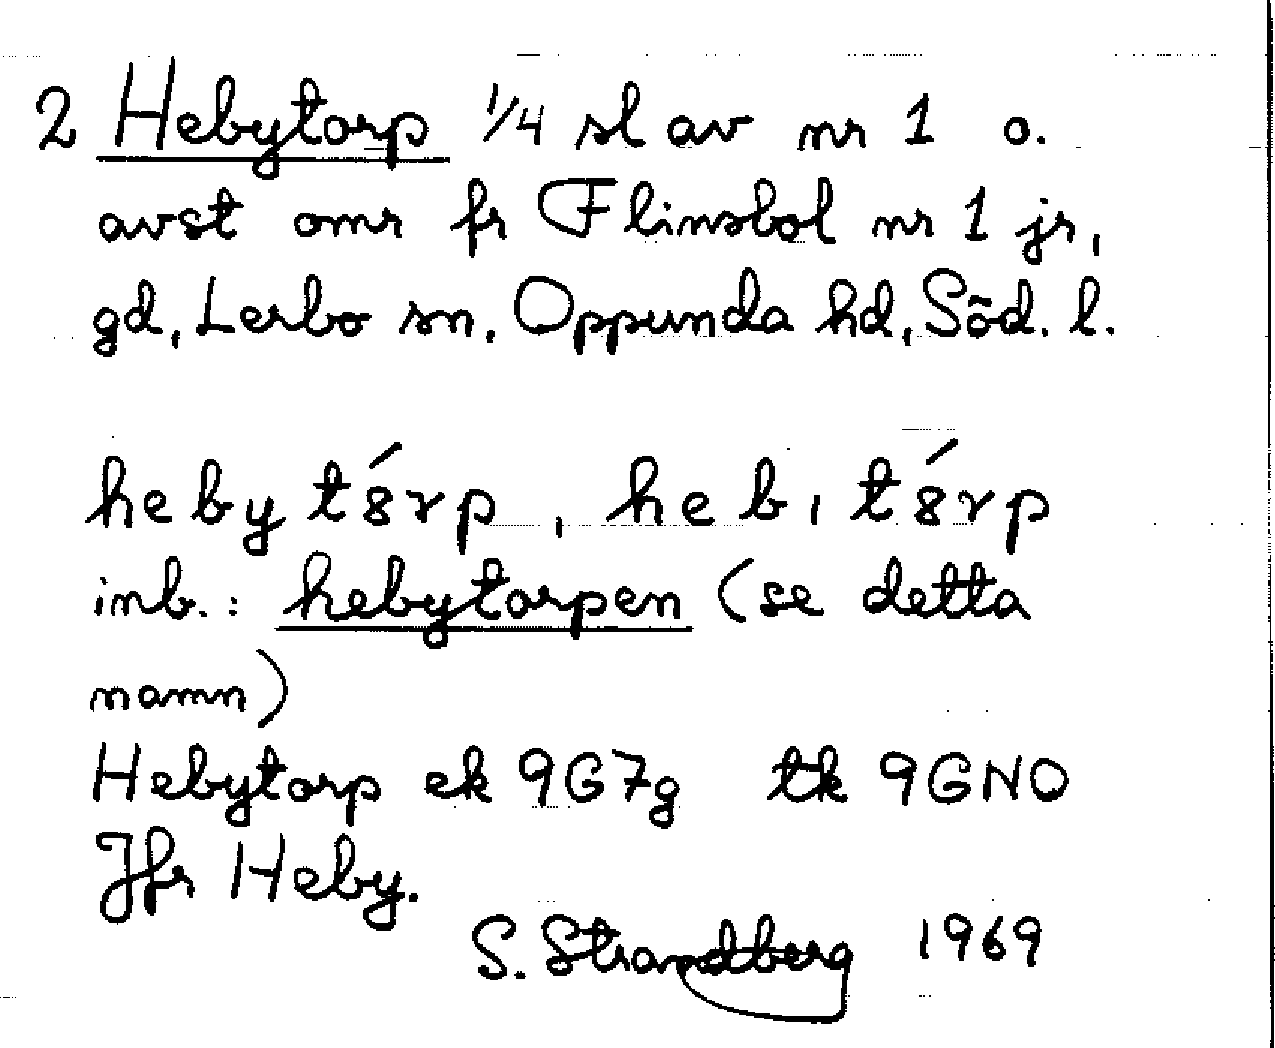 2 Hebytorp 1/4 sl av nr 1 o.
avst omr fr Flinsbol nr 1 jr,
gd, Lerbo sn, Oppunda hd, Söd. l.
heby tȣ́rp, heb ı tȣ́rp
inb.: hebytorpen (se detta
namn)
Hebytorp ek 9G7g tk 9GNO
Jfr Heby.
S. Strandberg 1969